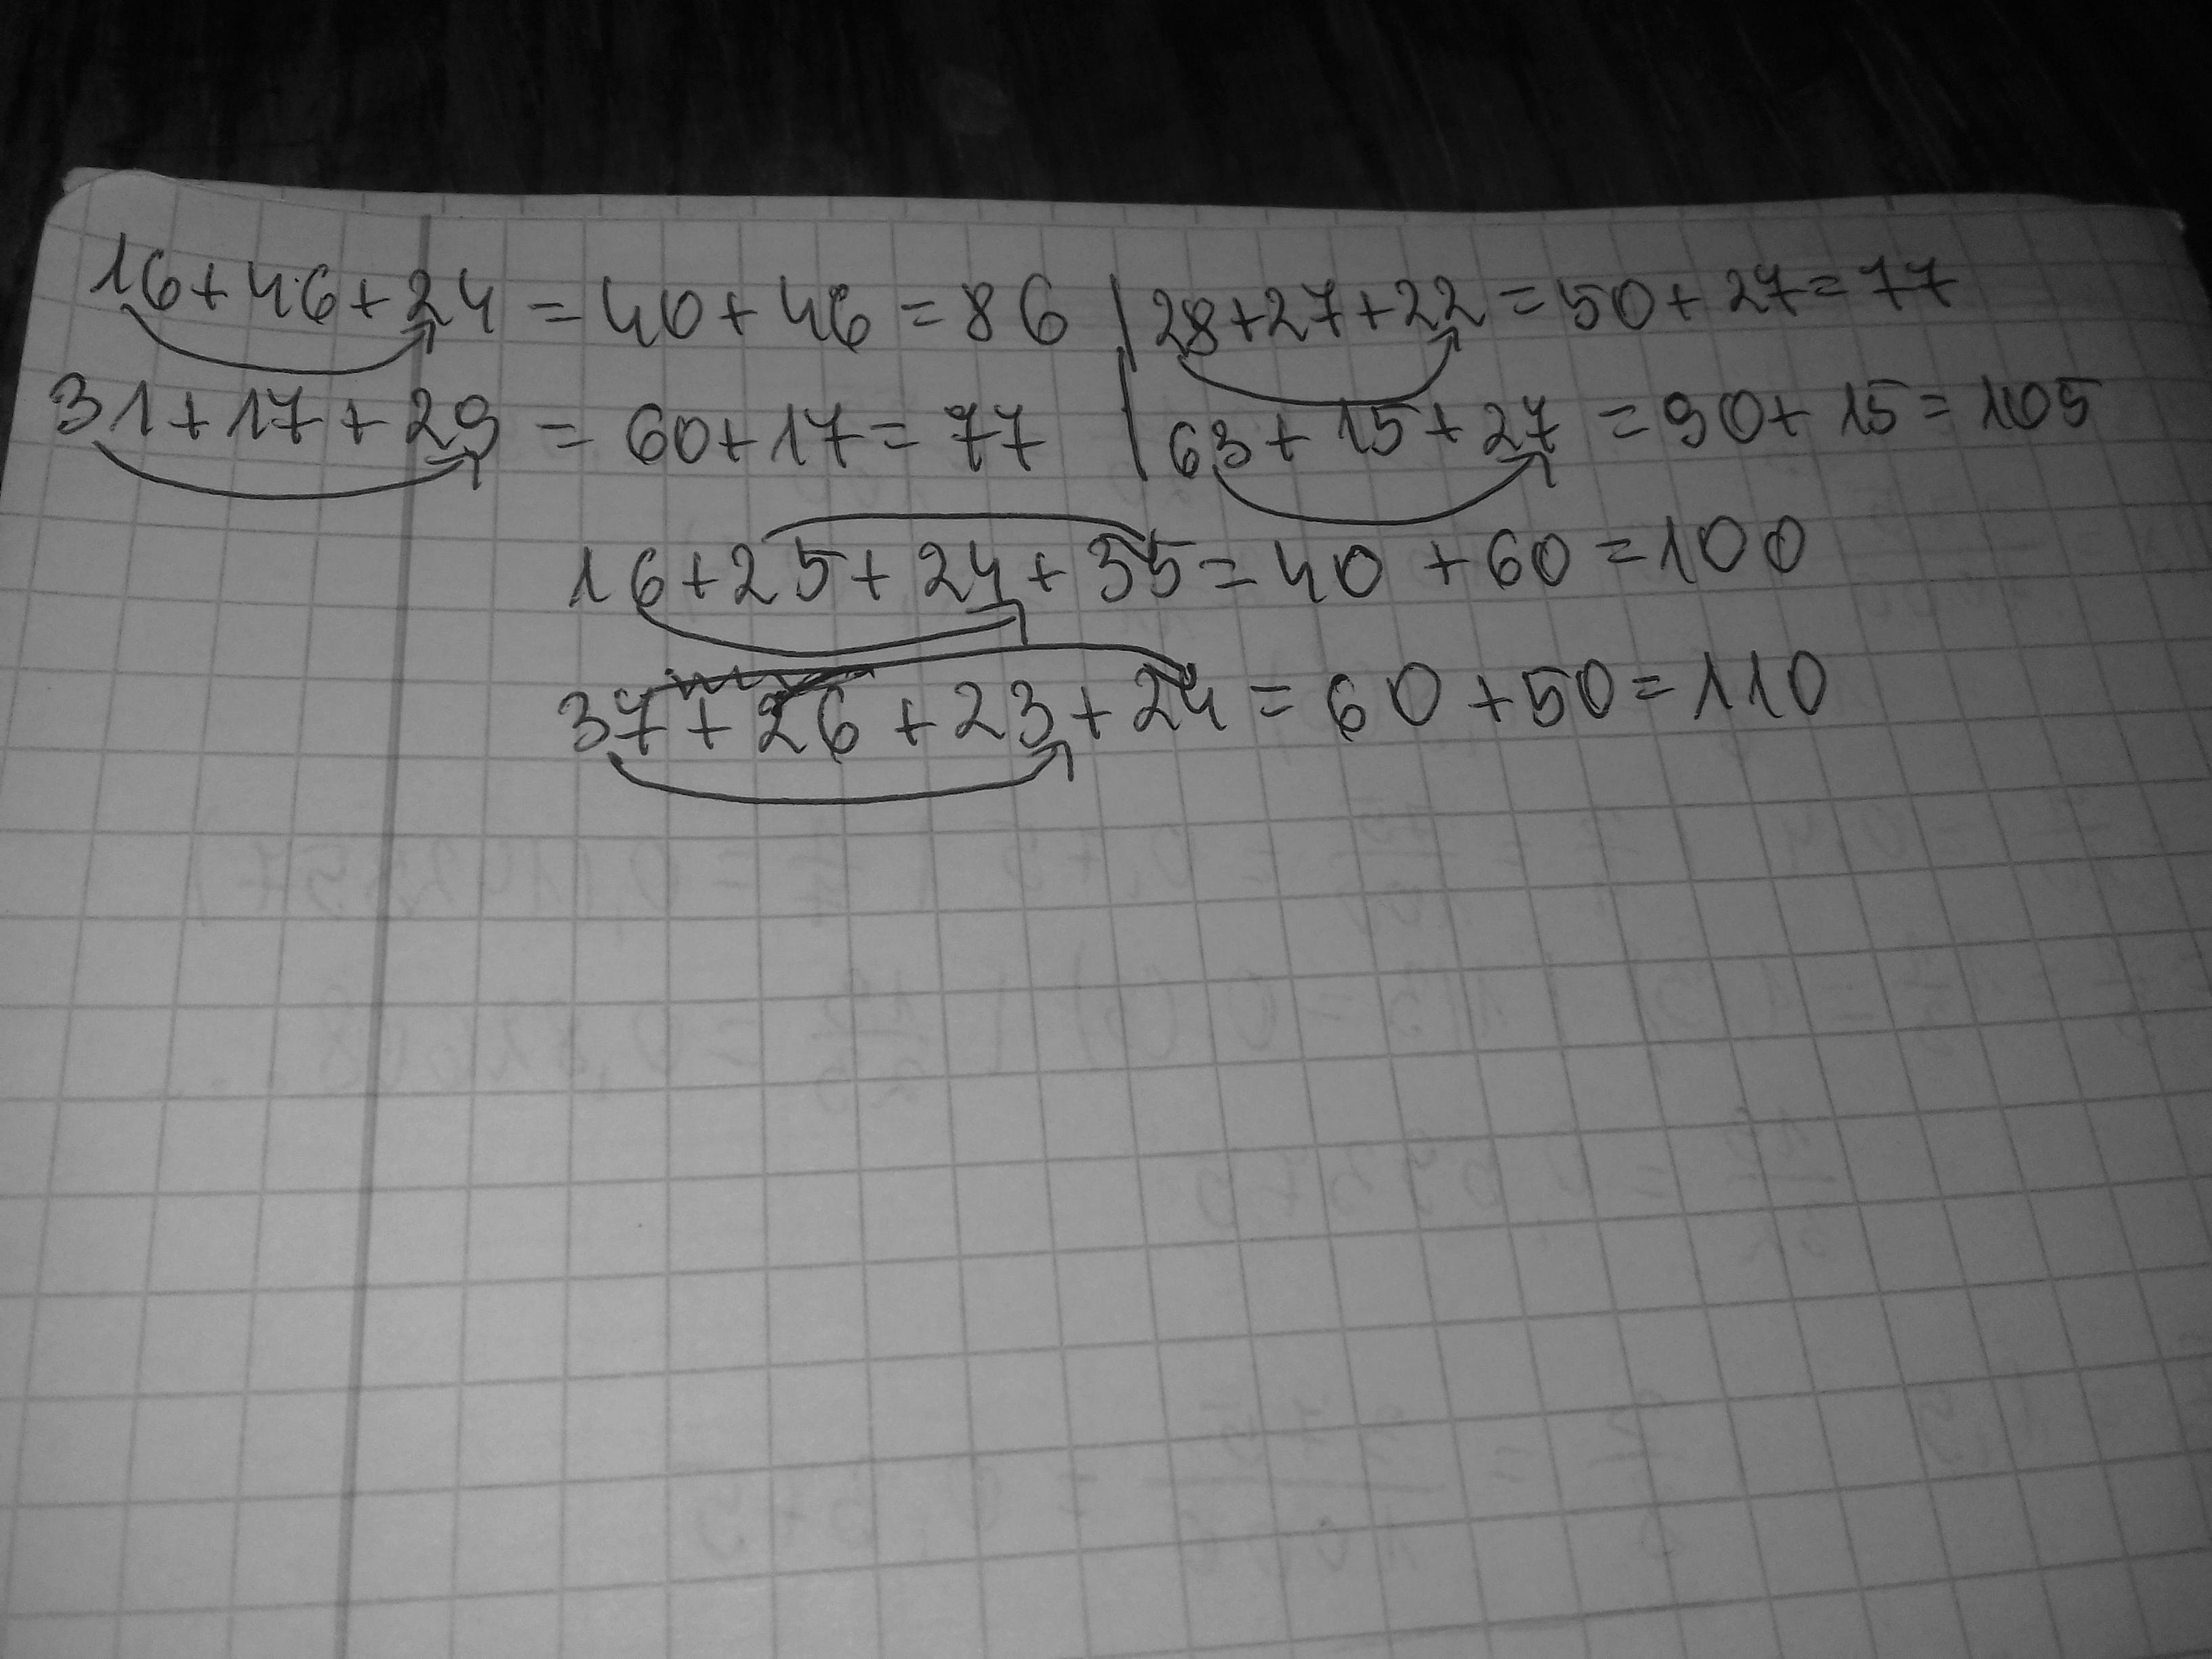 16+46+24 = 40+46 = 86 | 28+27+22 = 50+27 = 77
31+17+29 = 60+17 = 77 | 63+15+27 = 90+15 = 105
16+25+24+35 = 40+60 = 100
37+26+23+24 = 60+50 = 110